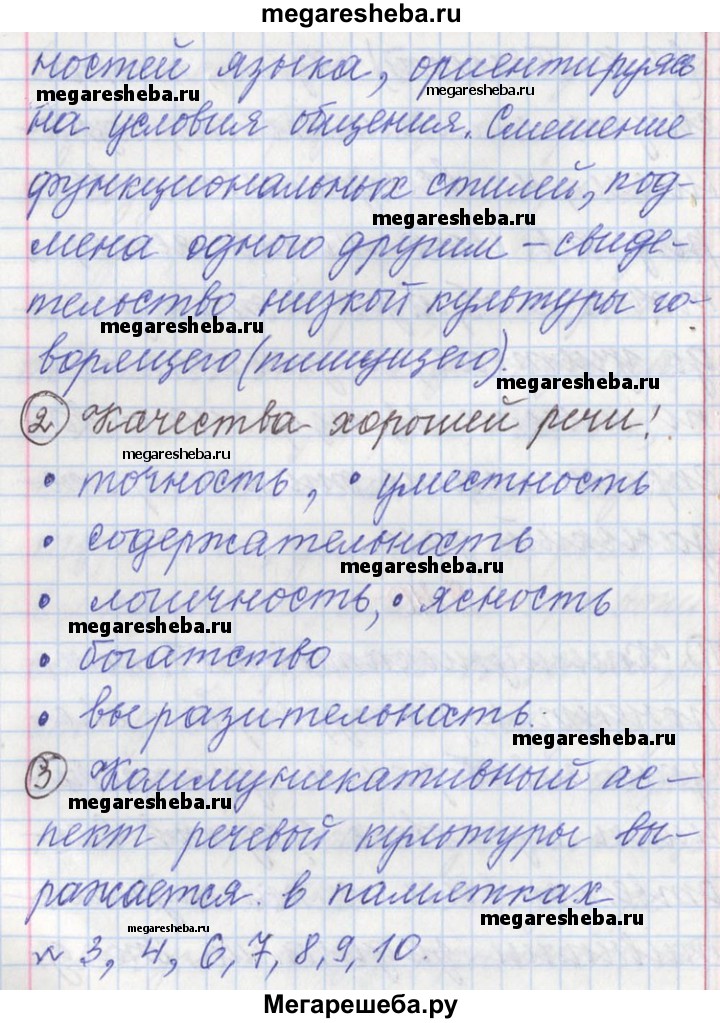 megaresheba.ru
ностей языка, ориентируясь
megaresheba.ru megaresheba.ru
на условия общения. Смешение
функциональных стилей, под-
megaresheba.ru
мена одного другим – свиде-
megaresheba.ru
тельство низкой культуры го-
megaresheba.ru
ворящего (пишущего).
megaresheba.ru
2 Качества хорошей речи!
megaresheba.ru
• точность, • уместность
• содержательность
megaresheba.ru
• логичность, • ясность
megaresheba.ru
• богатство
• выразительность.
megaresheba.ru
3 Коммуникативный ас-
megaresheba.ru
пект речевый культуры вы-
ражается в памятках
megaresheba.ru megaresheba.ru
№ 3, 4, 6, 7, 8, 9, 10.
Мегарешеба.ру